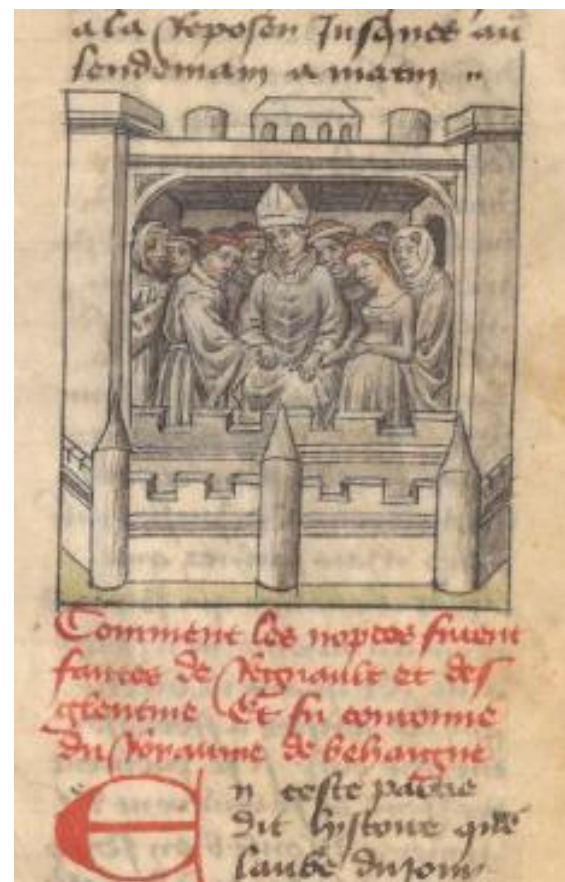 a la Reposer Jusques au
lendemain a matin ..
Comment les nopces furent
faictes de Regnault et des
glentine Et fu couronne
du Royaume de behaigne
En ceste partie
dit lystoire que
laube du jour